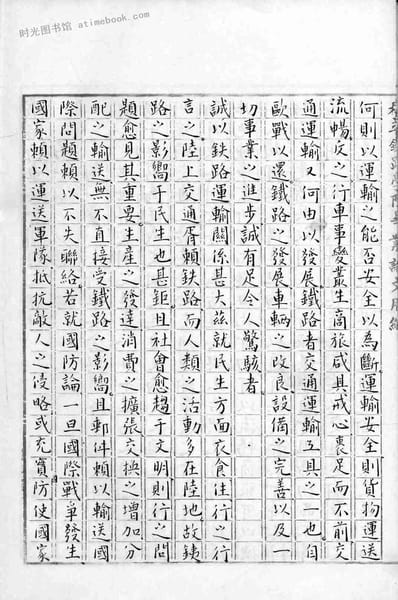 时光图书馆 atimebook.com
何則以運輸之能否安全以為斷運輸安全則貨物運送
流暢反之行車事變叢生商旅咸具戒心裹足而不前交
通運輸又何由以發展鐵路者交通運輸工具之一也自
歐戰以還鐵路之發展車輛之改良設備之完善以及一
切事業之進步誠有足令人驚駭者
誠以鉄路運輸關係甚大茲就民生方面衣食住行之行
言之陸上交通胥賴鉄路而人類之活動多在陸地故鉄
路之影嚮于民生也甚鉅且社會愈趨于文明則行之問
題愈見其重要生產之發達消費之擴張交換之增加分
配之輸送無不直接受鐵路之影嚮且郵件賴以輸送國
際問題賴以不失聯絡若就國防論一旦國際戰爭發生
國家賴以運送軍隊抵抗敵人之侵略或充實防使國家